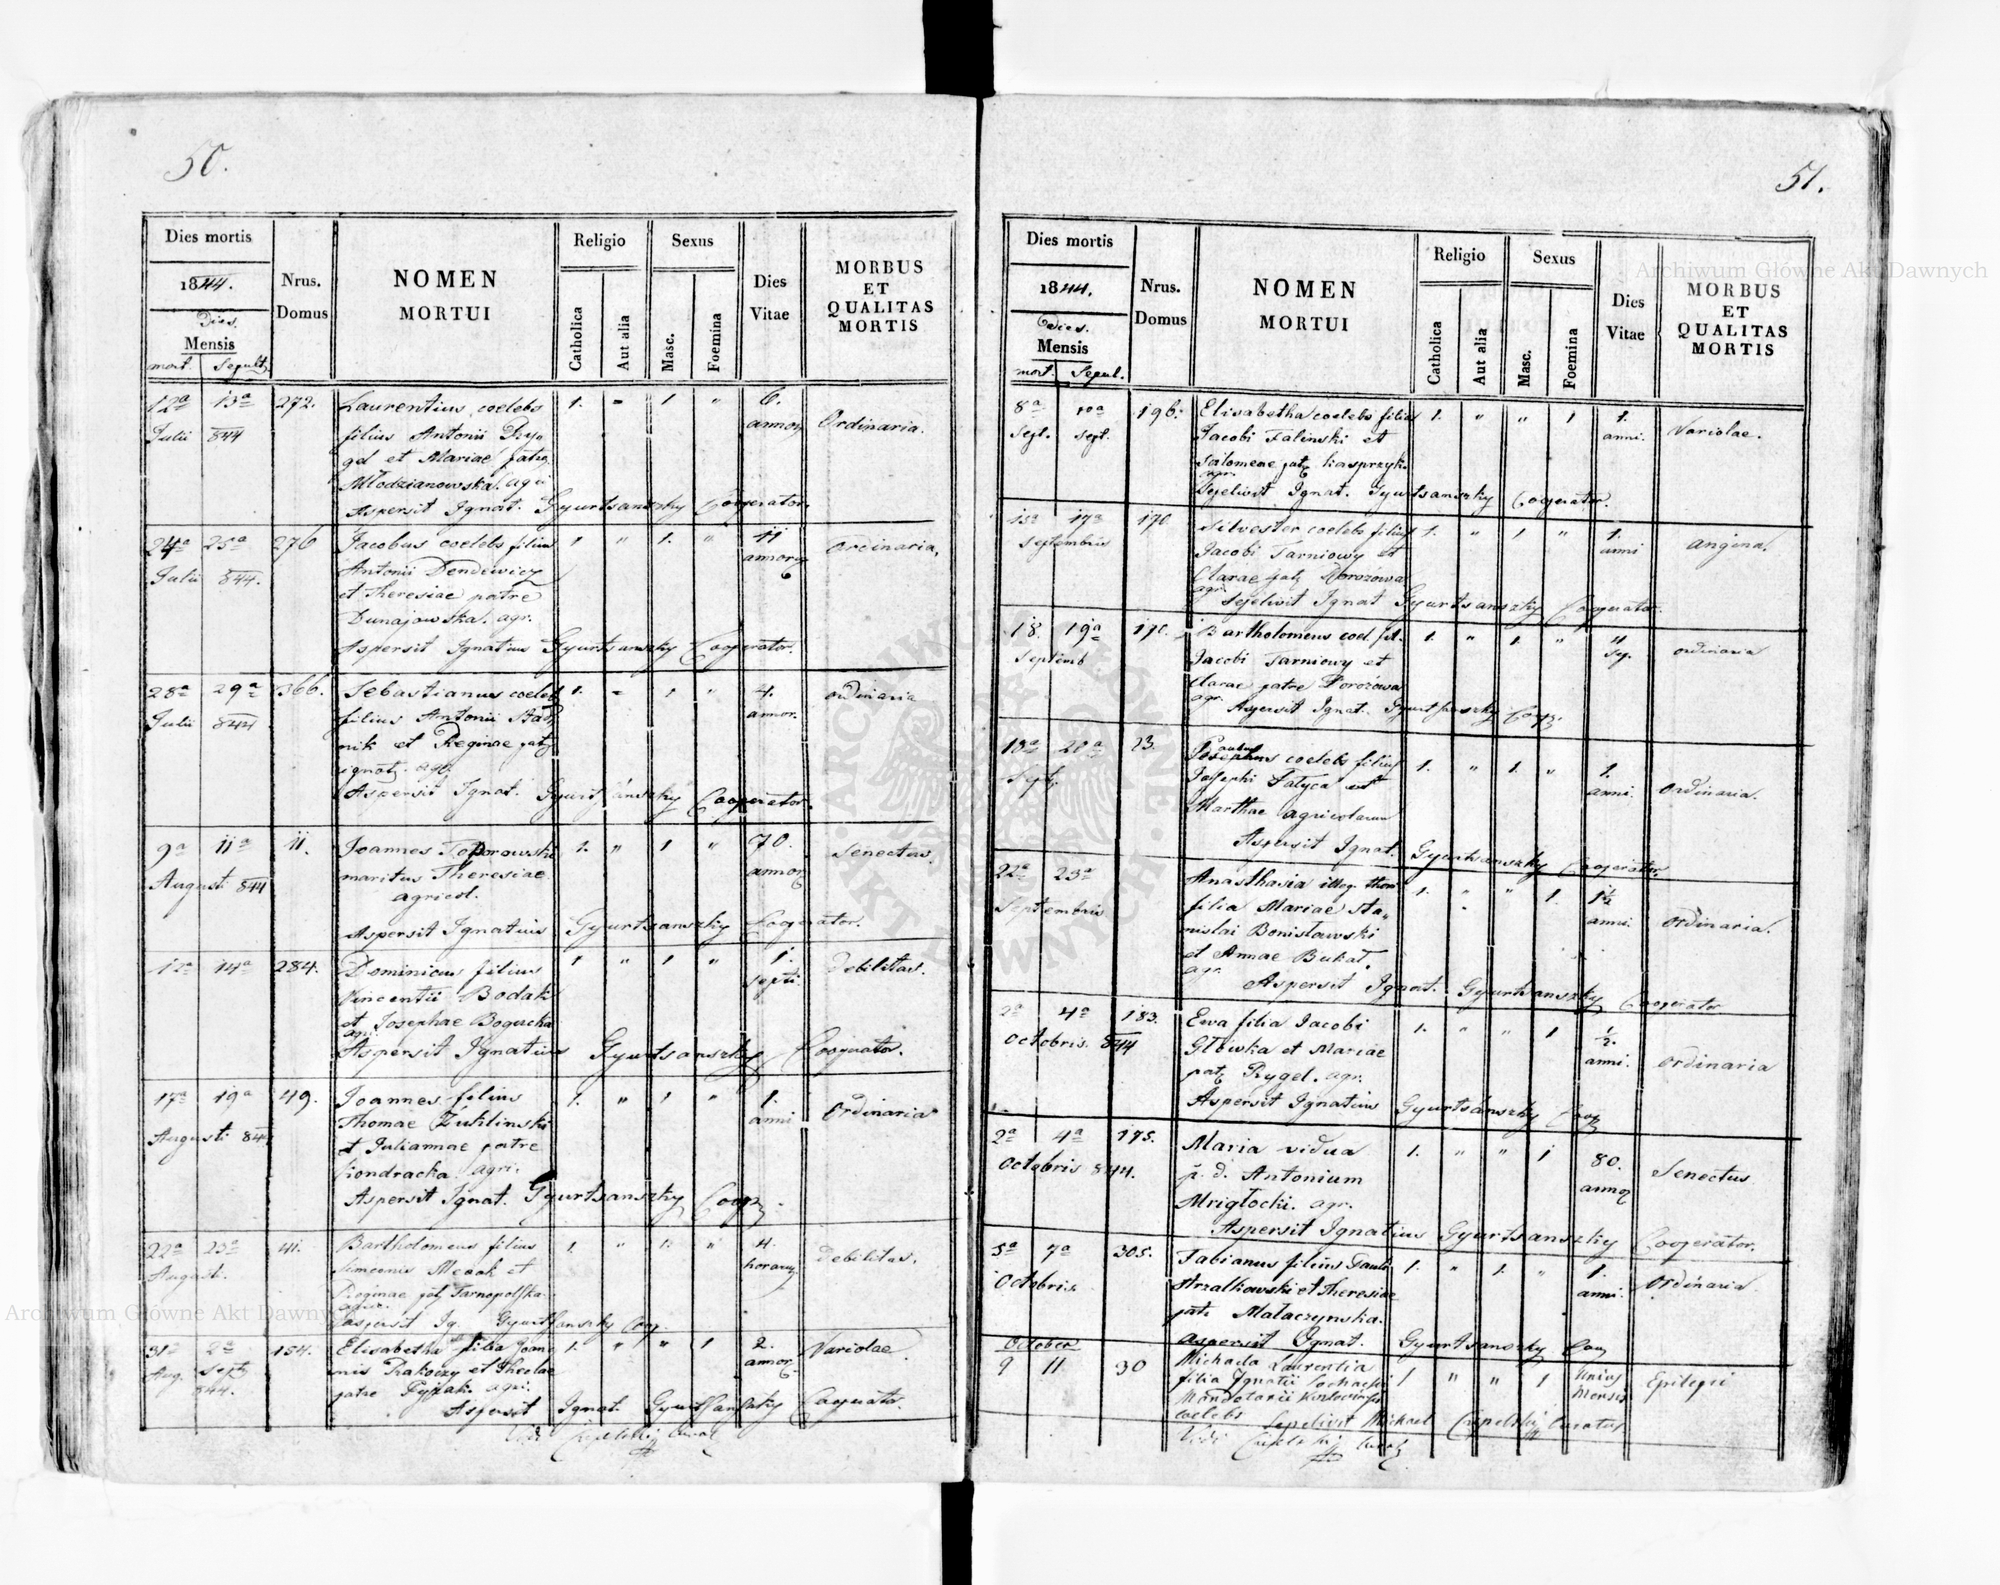 50.
Dies mortis
Nrus. Domus
NOMEN MORTUI
Religio
Sexus
Dies Vitae
MORBUS ET QUALITAS MORTIS
1844.
Dies.
Mensis
mort. Sepult.
Catholica
Aut alia
Masc.
Foemina
12a 13a 272. Laurentius coelebs 1. " 1 " 6.
Julii 844 filius Antonii annor. Ordinaria.
et Mariae
Młodzianowska. agri
Aspersit Ignat. Gyurtsanszky Cooperator.
24a 25a 276 Jacobus coelebs filius 1 " 1. " 11 Ordinaria,
Julii 844. Antonii Dendewicz annor.
et Theresiae patre
Dunajowska. agr.
Aspersit Ignatius Gyurtsanszky Cooperator.
28a 29a 366. Sebastianus coelebs 1. " 1. " 4. ordinaria
Julii 844 filius Antonii annor.
nik et Reginae
ignot. agr.
Aspersit Ignat. Gyurtsánszky Cooperator.
9a 11a 11. Joannes Toporowski 1. " 1 " 70. Senectus.
Augusti 844 maritus Theresiae annor.
agricol.
Aspersit Ignatius Gyurtsanszky Cooperator.
12a 14a 284. Dominicus filius 1 " 1 " 1. Debilitas.
Vincentii Bodak septi.
et Josephae
agr.
Aspersit Ignatius Gyurtsanszky Cooperator.
17a 19a 49. Joannes filius 1. " 1 " 1. Ordinaria
Augusti 844 Thomae Żuklinski anni
et Juliannae patre
agri.
Aspersit Ignat. Gyurtsanszky Coop.
22a 23a 41. Bartholomeus filius 1. " 1. " 4. Debilitas.
Augusti. Simeonis et horarum
Reginae Tarnopolska
Aspersit Ig. Gyurtsanszky Coop.
31a 2a 154. Elisabetha filia Joan 1. " " 1 2. Variolae
Aug. Sept. nis Rakoczy et Theclae annor.
844. patre agri.
Aspersit Ignat. Gyurtsanszky Cooperator.
Vidi
51.
Dies mortis
Nrus. Domus
NOMEN MORTUI
Religio
Sexus
Dies Vitae
MORBUS ET QUALITAS MORTIS
1844.
Dies.
Mensis
mort. Sepul.
Catholica
Aut alia
Masc.
Foemina
8a 10a 196. Elisabetha coelebs filia 1. " " 1 1. Variolae.
Sept. Sept. Jacobi Falinski et anni.
Salomeae Kasprzyk
agr.
Sepelivit Ignat. Gyurtsanszky Cooperator.
15a 17a 170 Silvester coelebs filius 1. " 1 " 1. angina.
Septembris Jacobi Tarniowy et anni
Clarae Dorozowa
agr. Sepelivit Ignat Gyurtsanszky Cooperator.
18. 19a 170. Bartholomeus coel. fil. 1. " 1. " 4 ordinaria
Septemb Jacobi Tarniowy et
Clarae patre Dorozowa
agr. Aspersit Ignat. Gyurtsanszky Coop.
18a 20a 23. Josephus coelebs filius 1. " 1. " 1. Ordinaria.
Sept. Josephi Fatyca et anni.
Marthae agricolarum
Aspersit Ignat. Gyurtsanszky Cooperator.
22a 23a Anasthasia illeg. thori 1. " " 1. 1½ Ordinaria.
Septembris filia Mariae Sta- anni.
nislai Bonisławski
et Annae Bukat
agr. Aspersit Ignat. Gyurtsanszky Cooperator
2a 4a 183. Ewa filia Jacobi 1. " " 1 ½. Ordinaria
Octobris. 844 Główka et Mariae anni.
pat. Rygel. agr.
Aspersit Ignatius Gyurtsánszky Coop
2a 4a 175. Maria vidua 1. " " 1 80. Senectus
Octobris 844. p. d. Antonium annor
Mrigłocki. agr.
Aspersit Ignatius Gyurtsanszky Cooperator.
5a 7a 305. Fabianus filius Pauli 1. " 1. " 1. Ordinaria
Octobris. Strzalkowski et Theresiae anni.
pat. Małaczynska.
aspersit Ignat. Gyurtsanszky Coop
October
9 11 30 Michaela Laurentia 1 " " 1 unius Epilepsi
filia Ignatii Mensis
Mandatarii
coelebs Sepelivit Michael Curatus
Vidi
Archiwum Główne Akt Dawnych
Archiwum Główne Akt Dawnych
ARCHIWUM GŁÓWNE AKT DAWNYCH